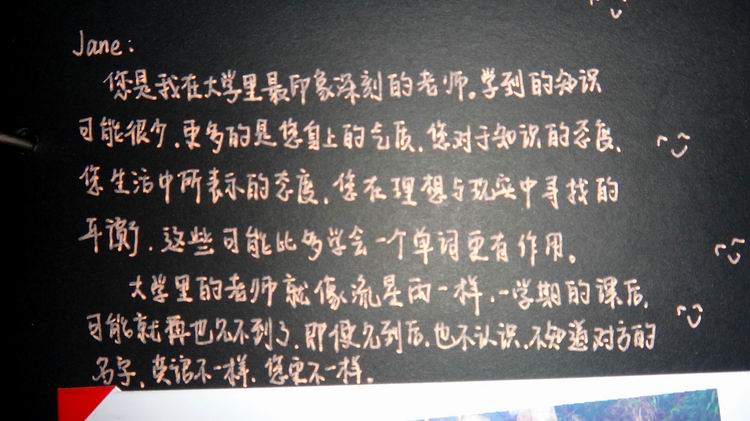 Jane:
您是我在大学里最印象深刻的老师。学到的知识
可能很少,更多的是您身上的气质,您对于知识的态度,
您生活中所表示的态度,您在理想与现实中寻找的
平衡,这些可能比多学会一个单词更有作用。
大学里的老师就像流星雨一样,一学期的课后,
可能就再也见不到了,即使见到后,也不认识,不知道对方的
名字,英语不一样,您更不一样。